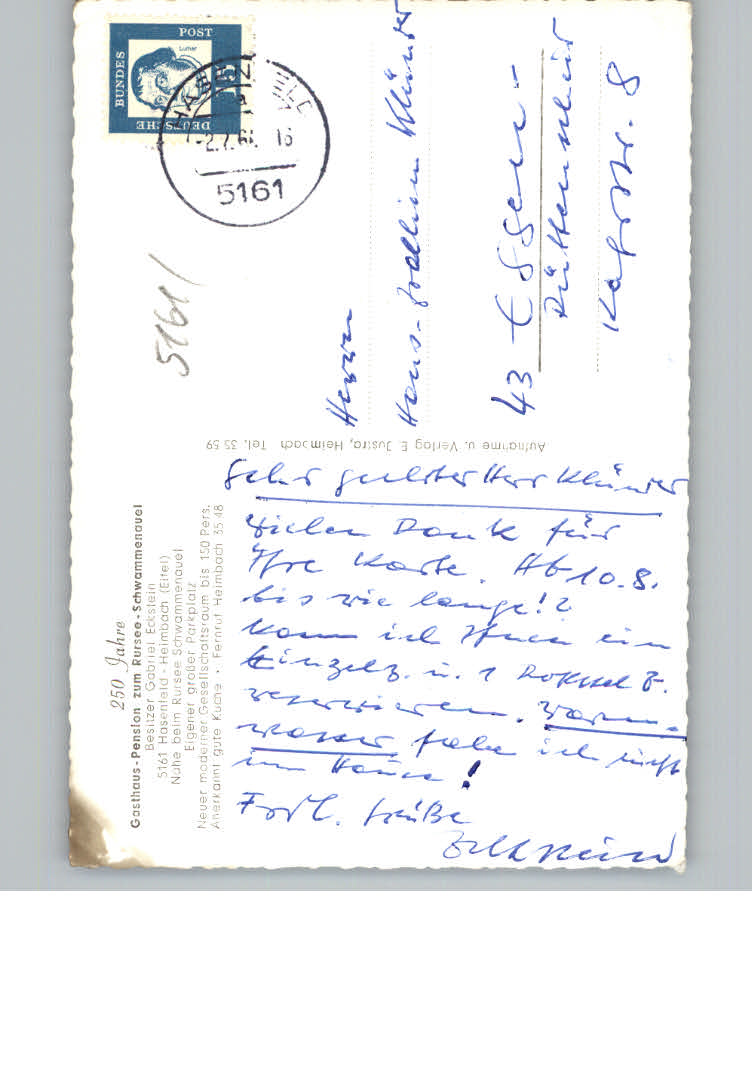 250 Jahre
Gasthaus-Pension zum Rursee-Schwammenauel
Besitzer Gabriel Eckstein
5161 Hasenfeld-Heimbach (Eifel)
Nähe beim Rursee Schwammenauel
Eigener großer Parkplatz
Neuer moderner Gesellschaftsraum bis 150 Pers.
Anerkannt gute Küche • Fernruf Heimbach 35 48
Sehr geehrter Herr Klünder
Vielen Dank für
Ihre Karte. Ab 10.8.
bis wie lange!?
Kann ich Ihnen ein
Einzelz. u. 1 Doppel Z.
reservieren. Warm-
wasser habe ich nicht
im Hause!
Frdl. Grüße
Aufnahme u. Verlag E. Justra, Heimbach Tel. 35 59
DEUTSCHE
BUNDES
POST
Luther
15
2.7.6 16
5161
5161/
Herrn
Hans-Joachim Klünder
43 Essen-
Rüttenscheid
8